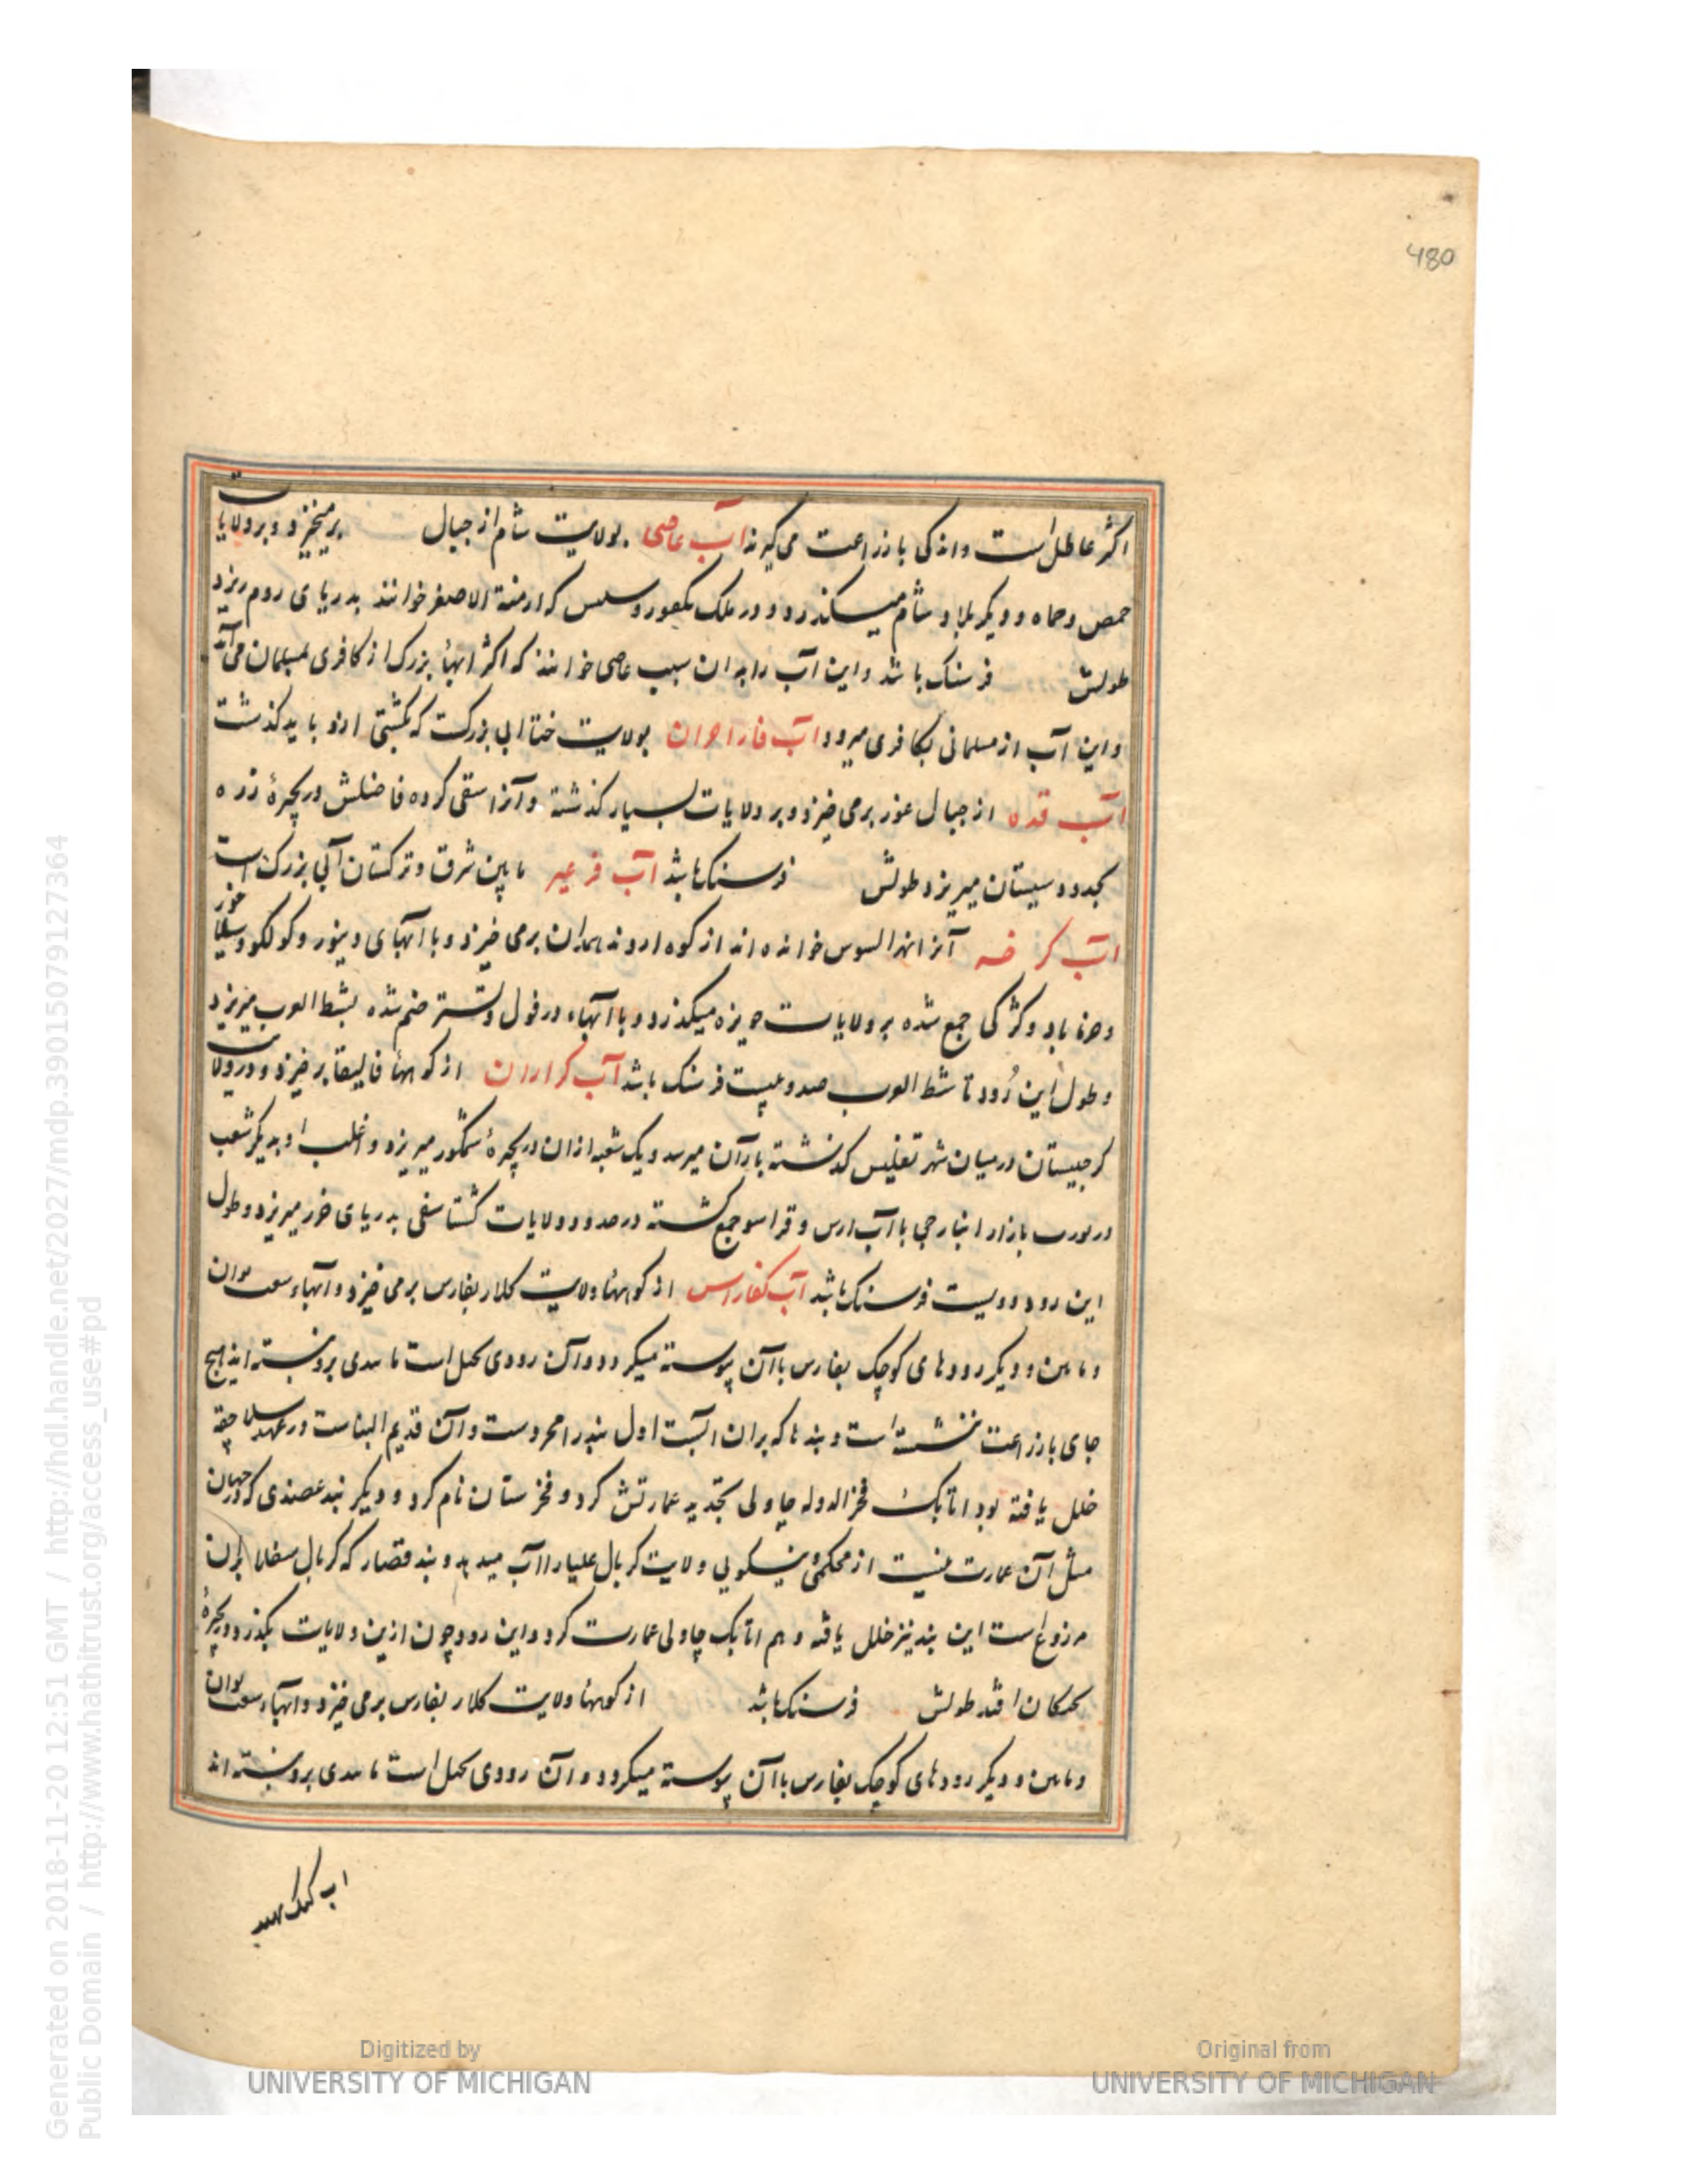 480
اکثر عاطل است و اندکی بازراعت می گیرند آب عاصی بولایت شام از جبال برمیخیزد و بر ولایات
حمص و حماه و دیکر بلاد شام میکذرد و در ملک تکفور و سیس که ارمنة الاصغر خوانند بدریای روم ریزد
طولش فرسنک باشد و این آب را بدان سبب عاصی خوانند که اکثر آبهاء بزرک از کافری بمسلمان می آید
و این آب از مسلمانی بکافری میرود آب قاراحران بولایت ختا آبی بزرکست که بکشتی ازو باید کذشت
آب قده از جبال غور برمی خیزد و بر ولایات بسیار کذشته و آنرا سقی کرده فاضلش در بحیرهٔ زره
بحدود سیستان میریزد و طولش فرسنک باشد آب فرعیر مابین شرق و ترکستان آبی بزرک است
آب کرخه آنرا نهر السوس خوانده اند از کوه اروند همدان برمی خیزد و با آبهای دینور و کولکو و سیلاخور
و خرماباد و کژکی جمع شده بر ولایات حویزه میکذرد و با آبهاء دزفول و تستر ضم شده بشط العرب میریزد
و طول این رود تا شط العرب صد و بیست فرسنک باشد آب کراران از کوههاء قالیقلا برخیزد و در ولایت
کرجیستان در میان شهر تفلیس کذشته بارآن میرسد و یک شعبه ازان در بحیرهٔ شمکور میریزد و اغلب او بدیکر شعب
در بازار انبارجی با آب ارس و قراسو جمع کشته در حدود ولایات کشتاسفی بدریای خزر میریزد و طول
این رود دویست فرسنک باشد آب کفارس از کوههاء ولایت کلار بفارس برمی خیزد و آبهاء شعب بوان
و ماین و دیکر رودهای کوچک بفارس با آن پیوسته میکردد و آن رودی بخیل است تا سدی برو نبسته اند هیچ
جای بازراعت ننشسته است و بندها که بران آبست اول بند رامجرد ست و آن قدیم البناست در عهد سلاجقه
خلل یافته بود اتابک فخرالدوله چاولی تجدید عمارتش کرد و فخرستان نام کرد و دیکر بند عضدی که در جهان
مثل آن عمارت نیست از محکمی و نیکویی ولایت کربال علیا را آب میدهد و بند قصار که کربال سفلا بران
مزروع است این بند نیز خلل یافته و هم اتابک چاولی عمارت کرد و این رود چون ازین ولایات بکذرد در بحیرهٔ
بختکان افتد طولش فرسنک باشد از کوههاء ولایت کلار بفارس برمی خیزد و آبهاء شعب بوان
و ماین و دیکر رودهای کوچک بفارس با آن پیوسته میکردد و آن رودی بخیل است تا سدی برو نبسته اند
Digitized by
UNIVERSITY OF MICHIGAN
Original from
UNIVERSITY OF MICHIGAN
Generated on 2018-11-20 12:51 GMT / http://hdl.handle.net/2027/mdp.39015079127364
Public Domain / http://www.hathitrust.org/access_use#pd